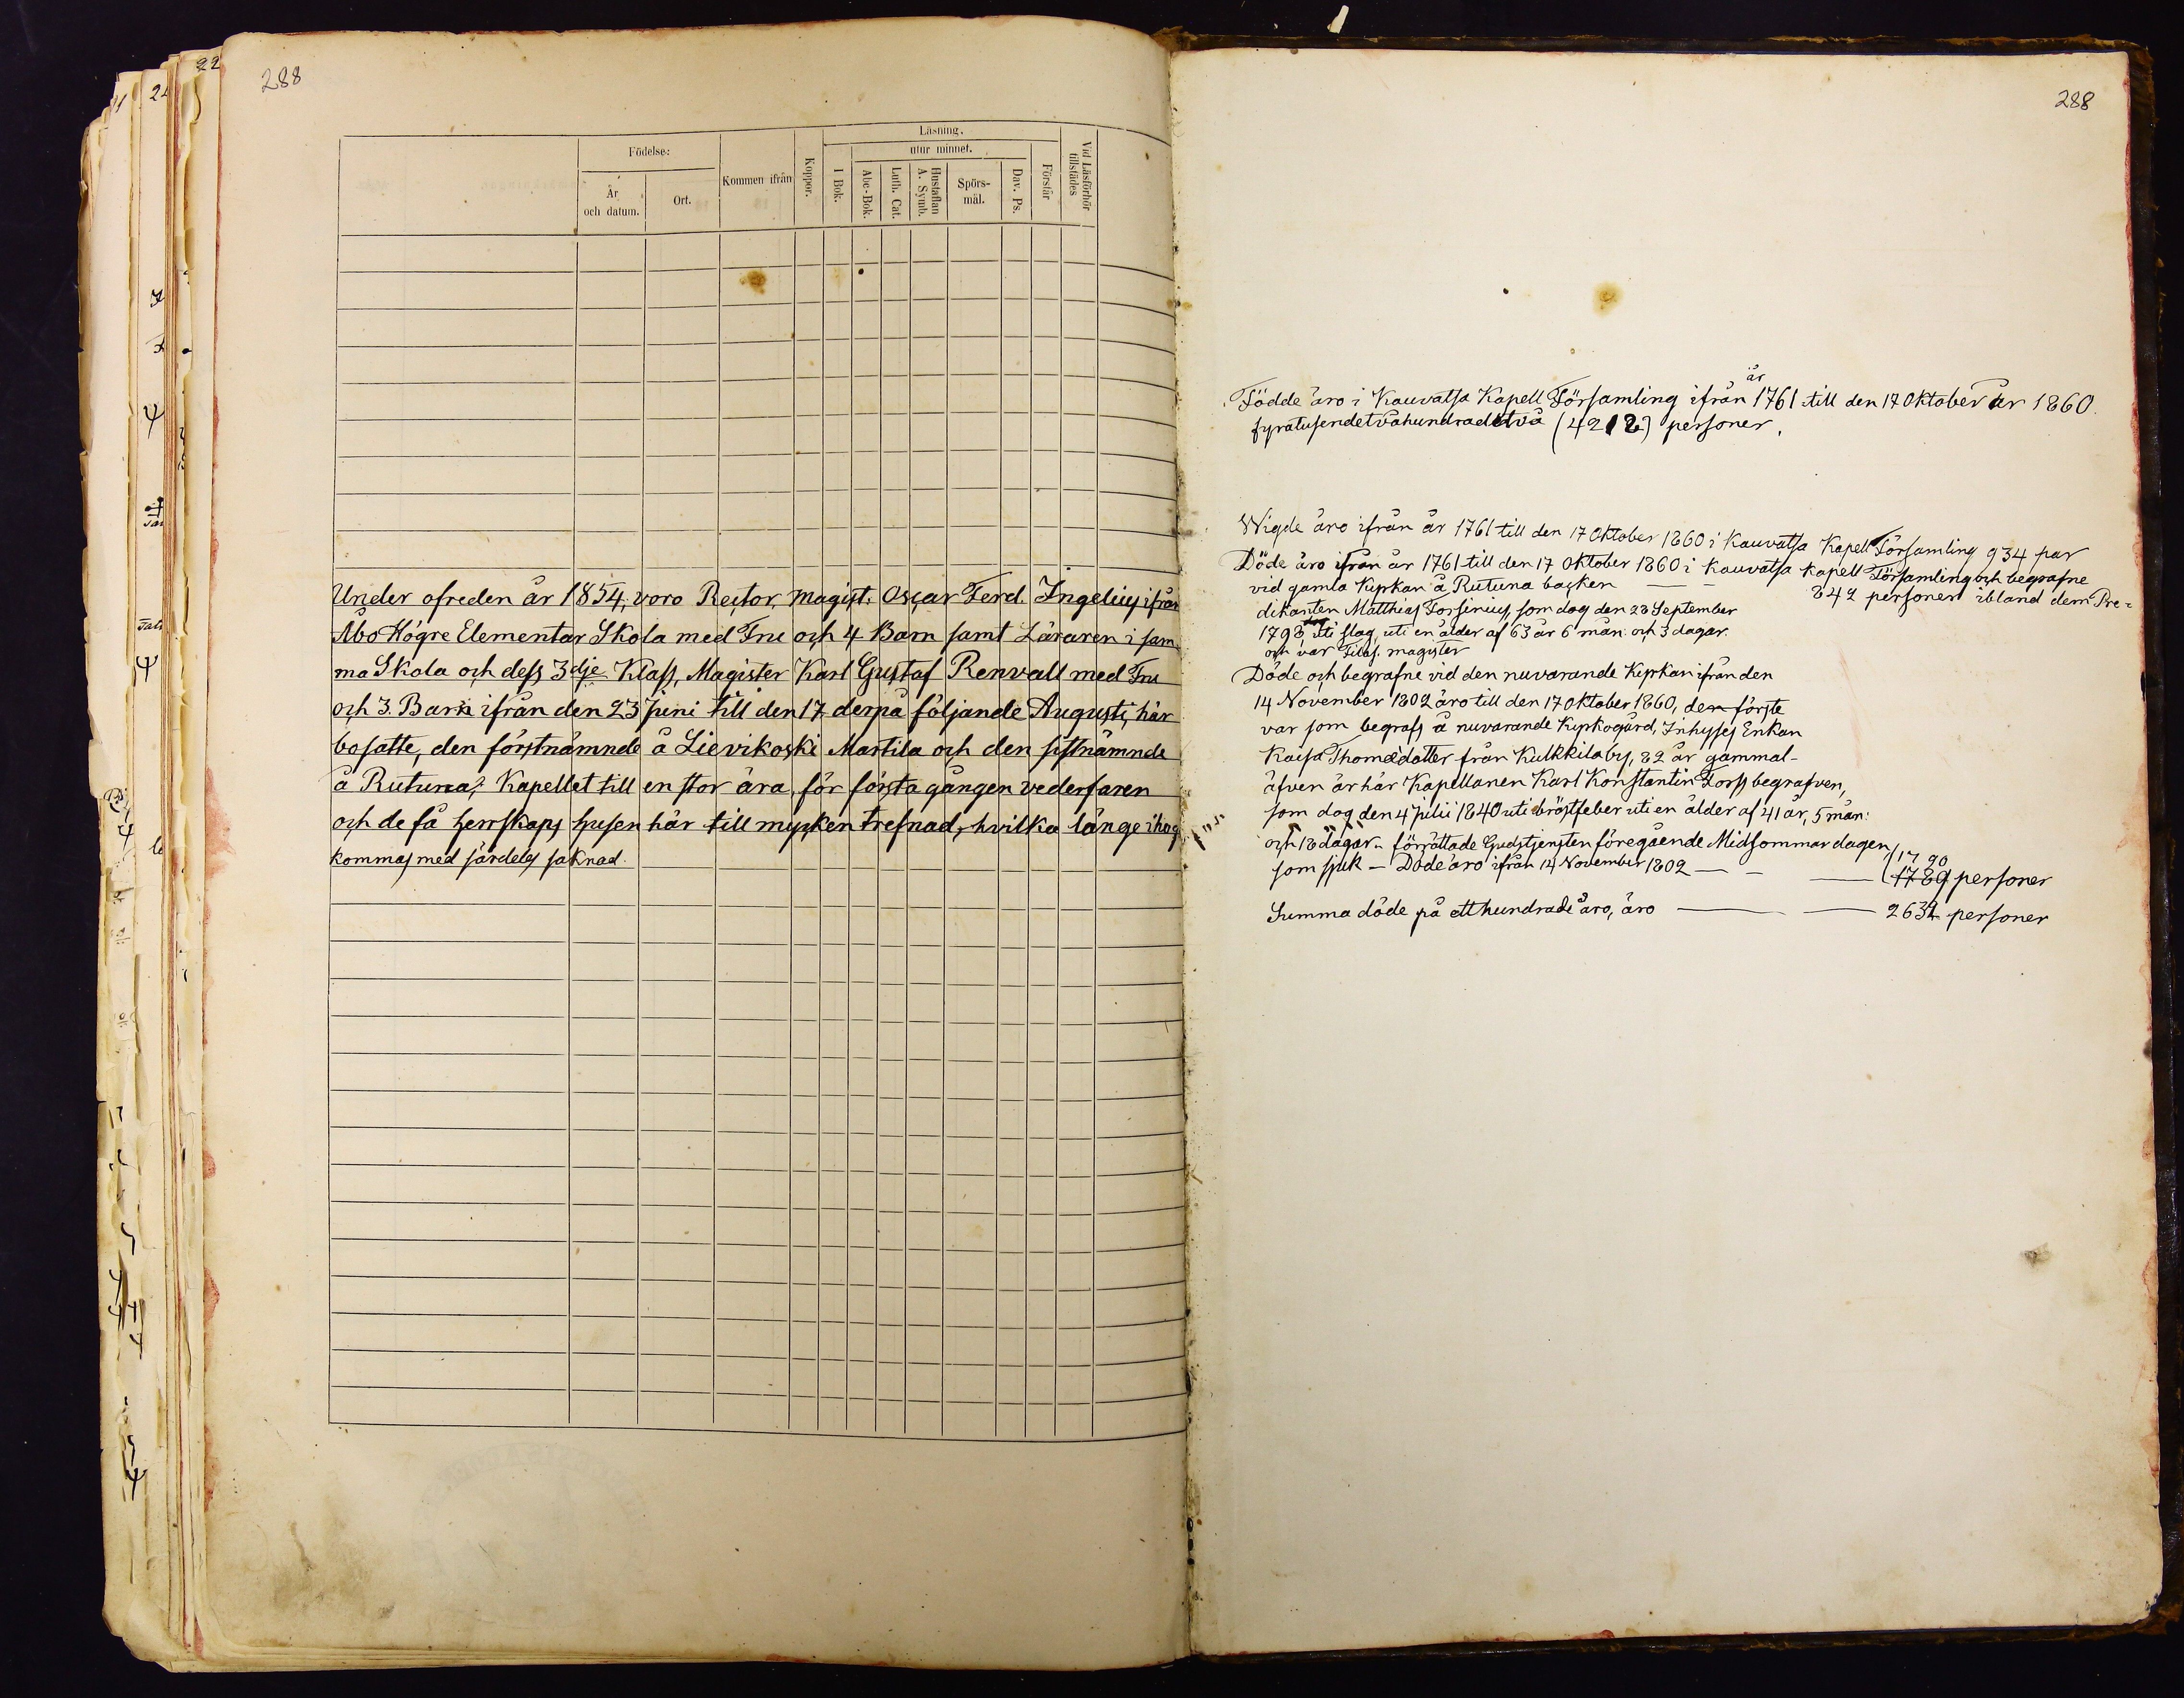 288
Födelse:
År
och datum.
Ort.
Kommen ifrån
Koppor.
Läsning.
utur minnet.
I Bok.
Abc-Bok.
Luth. Cat.
Hustaflan
A. Symb.
Spörs-
mål.
Dav. Ps.
Förstår
Vid Läsförhör
tillstädes
Under ofreden år 1854, voro Rector, Magist. Oscar Ferd. Ingelius ifrån
Åbo Högre Elementar Skola med Fru och 4 Barn samt Läraren i sam
ma Skola och dess 3dje Klass, Magister Karl Gustaf Renvall med Fru
och 3. Barn ifrån den 23 Juni till den 17 derpå följande Augusti, här
bosatte, den förstnämnde å Lievikoski Martila och den sistnämnde
å Rutuna, Kapellet till en stor ära, för första gången vederfaren
och de få herrskaps husen här till mycken trefnad, hvilka länge ihog
kommas med särdeles saknad.
288
år
Födde äro i Kauvatsa Kapell Församling ifrån 1761 till den 17 Oktober år 1860.
fyratusendetvåhundrade två (4212) personer.
Wigde äro ifrån år 1761 till den 17 Oktober 1860 i Kauvatsa Kapell Församling 934 par
Döde äro ifrån år 1761 till den 17 Oktober 1860 i Kauvatsa Kapell Församling och begrafne
vid gamla Kyrkan å Rutuna backen — — 842 personer ibland dem Pre-
dikanten Matthias Forsenius, som dog den 28 September
1798, uti slag, uti en ålder af 63 år 6 mån: och 3 dagar.
och var Filos. magister
Döde och begrafne vid den nuvarande Kyrkan ifrån den
14 November 1802 äro till den 17 Oktober 1860, den förste
var som begrafs å nuvarande Kyrkogård, Inhyses Enkan
Kaisa Thomædotter från Kulkkila by, 82 år gammal-
äfven är här Kapellanen Karl Konstantin Forss begrafven,
som dog den 4 Julii 1840 uti bröstfeber uti en ålder af 41 år, 5 mån:
och 18 dagar. förrättade Gudstjensten föregående Midsommar dagen
som sjuk — Döde äro ifrån 14 November 1802 — — — 1789 personer
1790
Summa döde på ett hundrade åro, äro — — 2632 personer